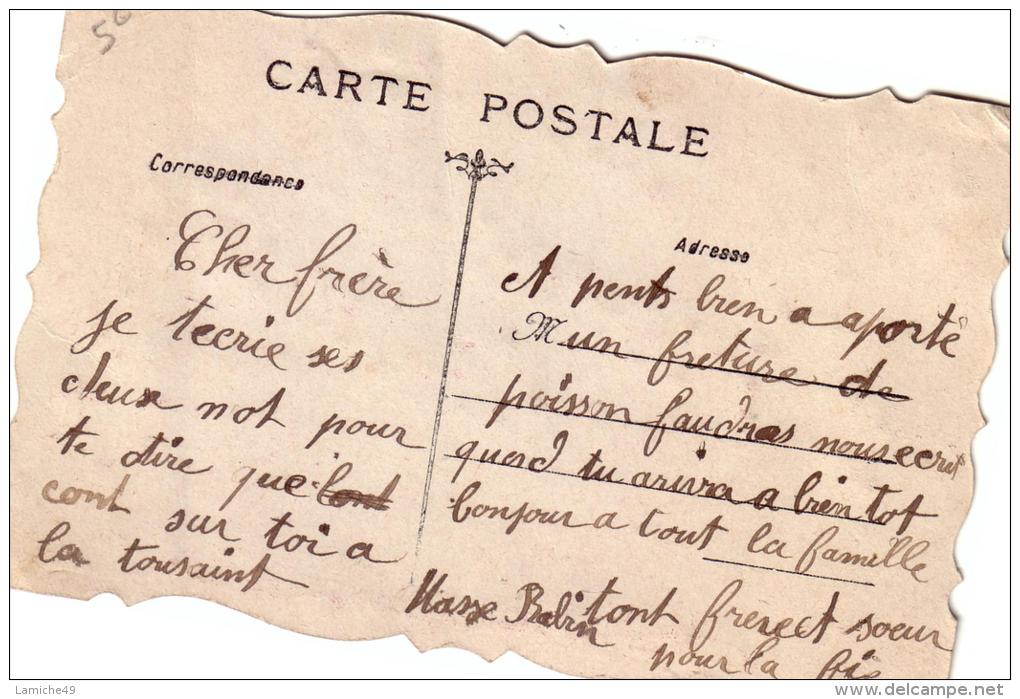 50
CARTE POSTALE
Correspondance
Cher frère
je tecrie ses
deux not pour
te dire que
cont sur toi a
la tousaint
Adresse
M
et pents bien a aporté
un freture de
poisson faudras nous ecrit
quend tu arivra a bien tot
bonjour a tout la famille
tont frère et soeur
pour la fie
Lamiche49
www.delcampe.net